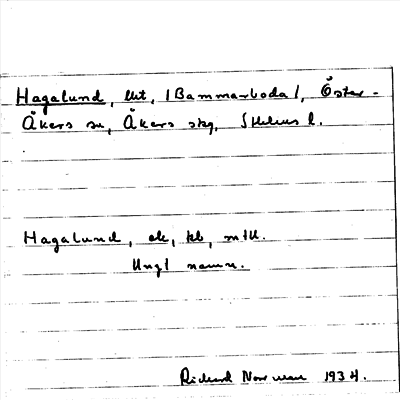 Hagalund, lht, /Bammarboda/, Öster-
Åkers sn, Åkers skg, Sthlms l.
Hagalund, ek, kb, mtl.
Ungt namn.
Rickard Norrman 1934.